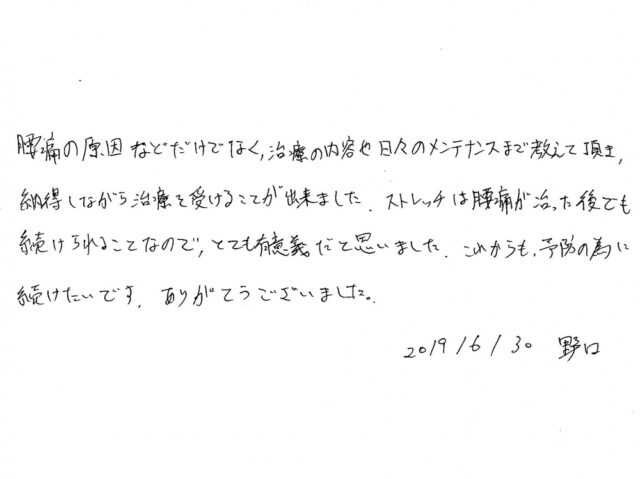 腰痛の原因などだけでなく、治療の内容や日々のメンテナンスまで教えて頂き、
納得しながら治療を受けることが出来ました。ストレッチは腰痛が治った後でも
続けられることなので、とても有意義だと思いました。これからも、予防の為に
続けたいです。ありがてうございました。
2019/6/30 野口